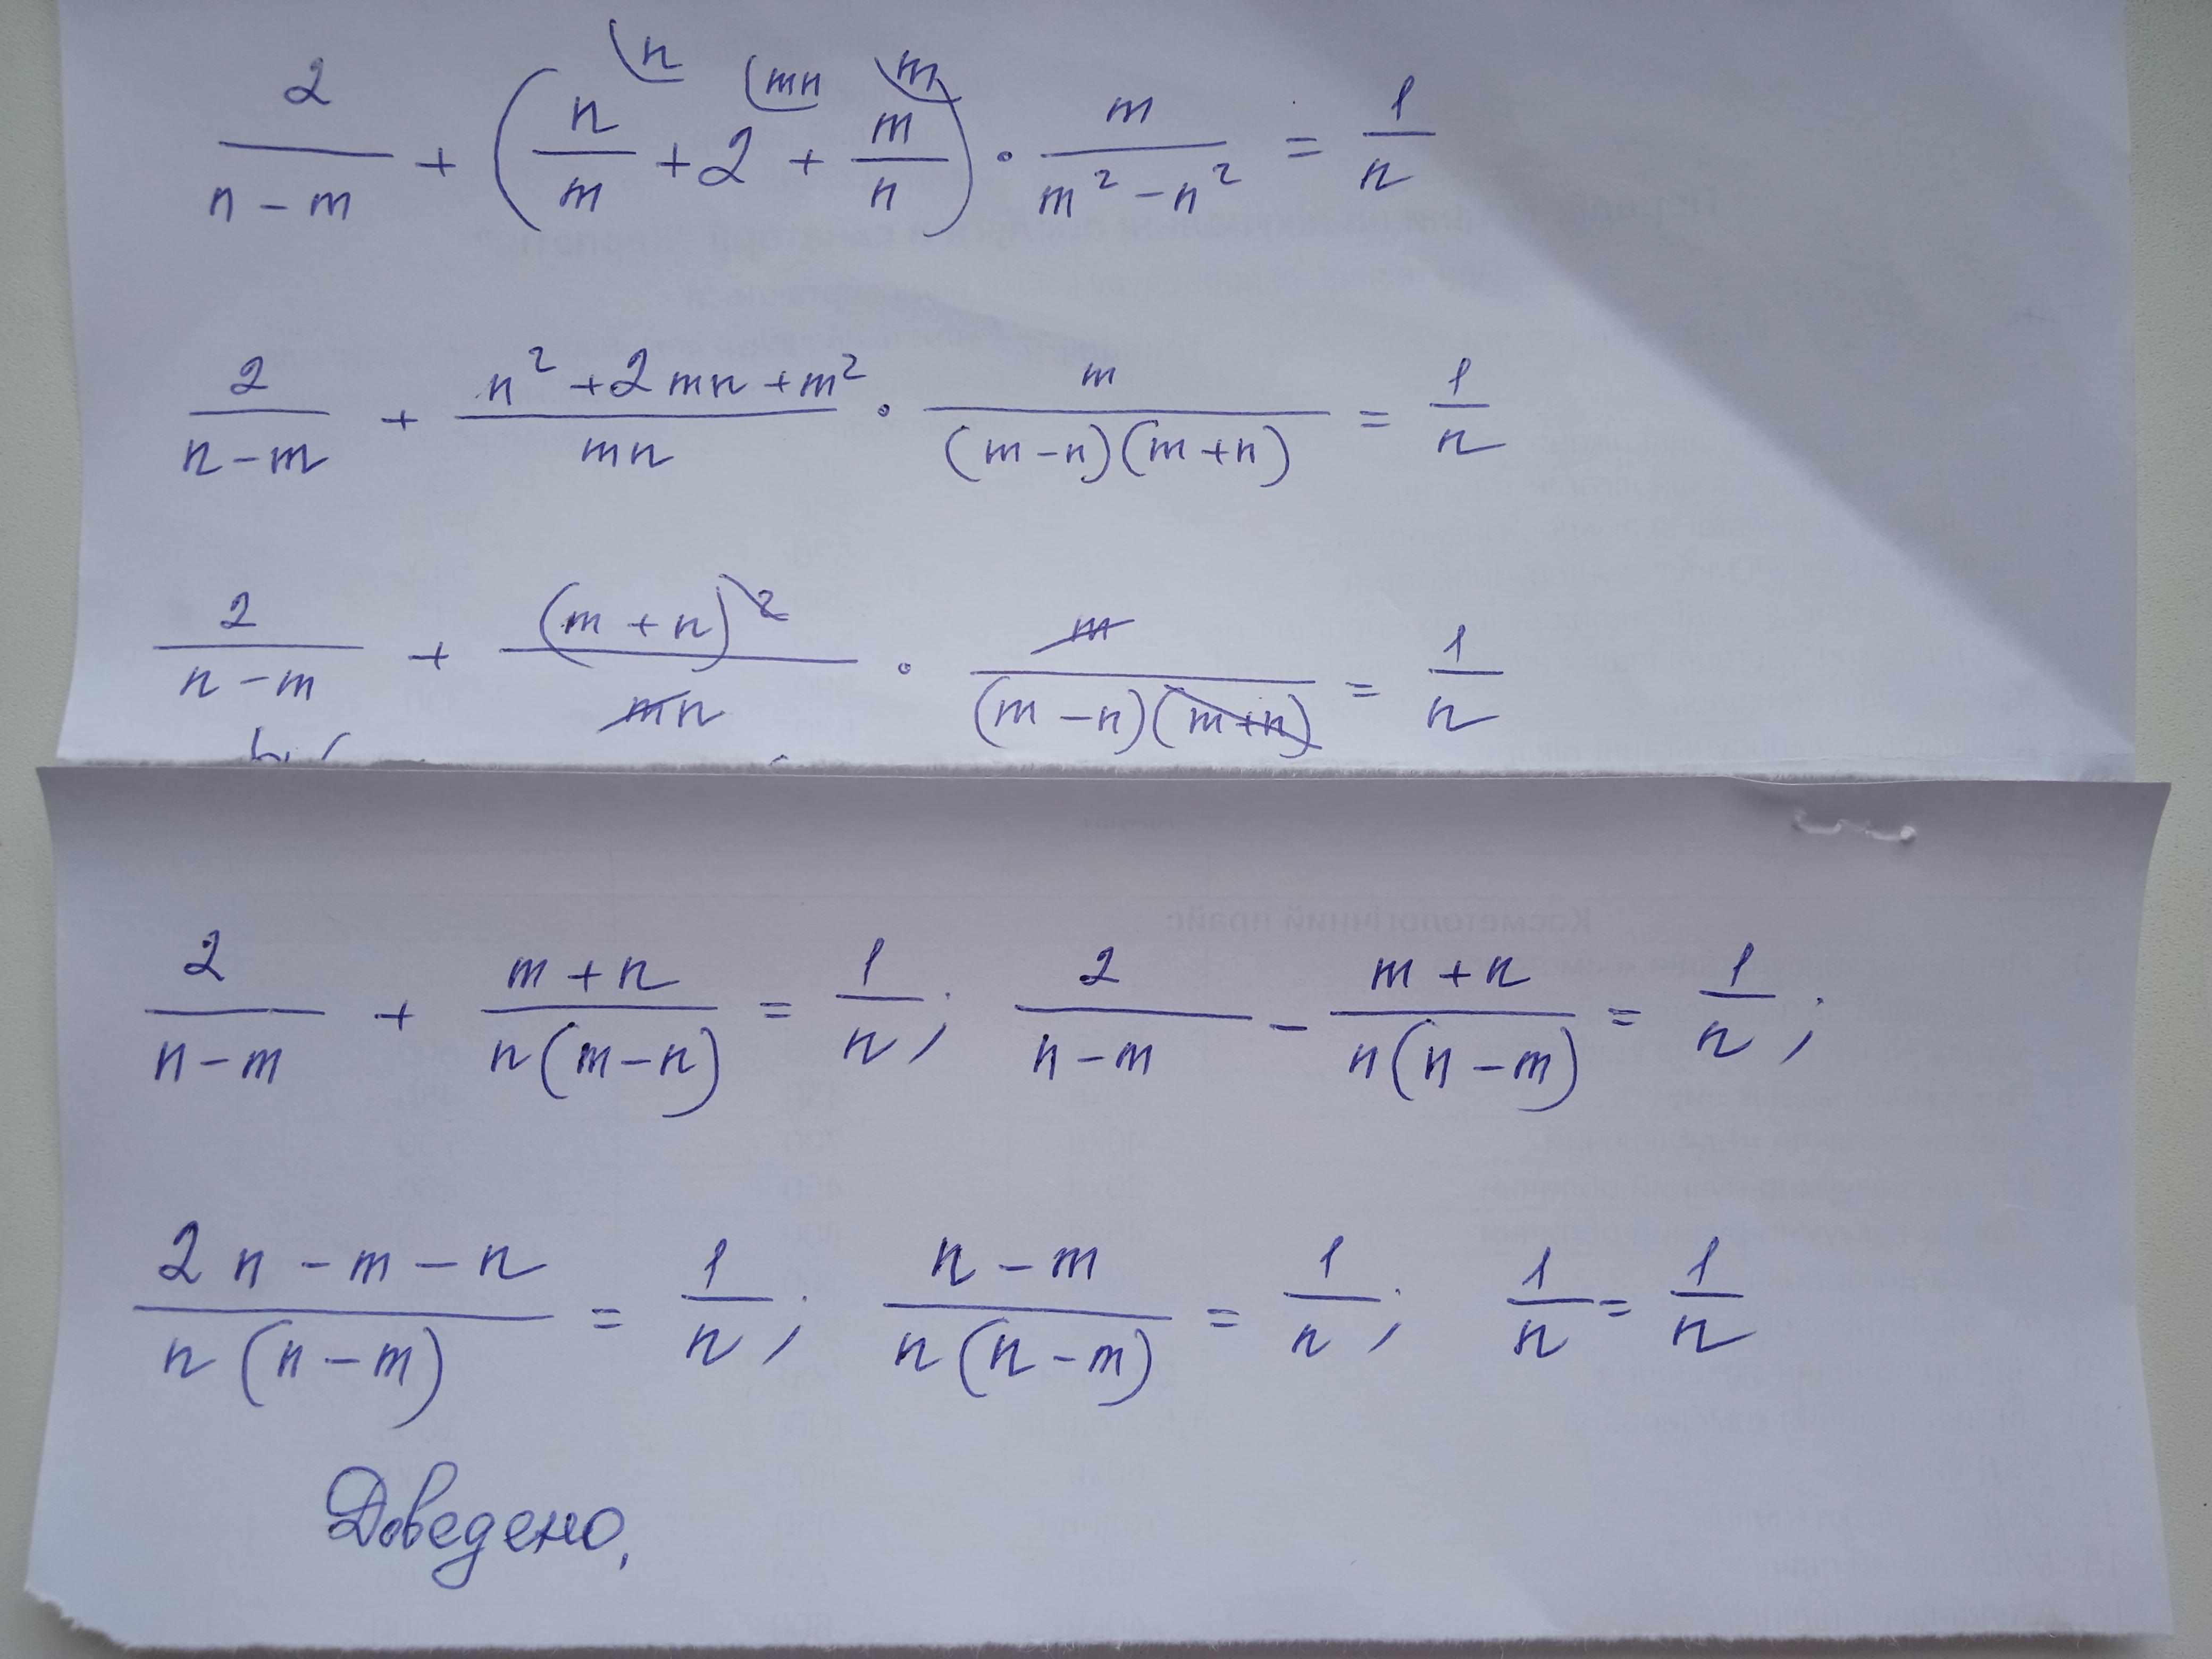 n mn m
2/(n-m) + (n/m + 2 + m/n) · m/(m²-n²) = 1/n
2/(n-m) + (n²+2mn+m²)/(mn) · m/((m-n)(m+n)) = 1/n
2/(n-m) + (m+n)²/(mn) · m/((m-n)(m+n)) = 1/n
2/(n-m) + (m+n)/(n(m-n)) = 1/n; 2/(n-m) - (m+n)/(n(n-m)) = 1/n;
(2n-m-n)/(n(n-m)) = 1/n; (n-m)/(n(n-m)) = 1/n; 1/n = 1/n
Доведено,